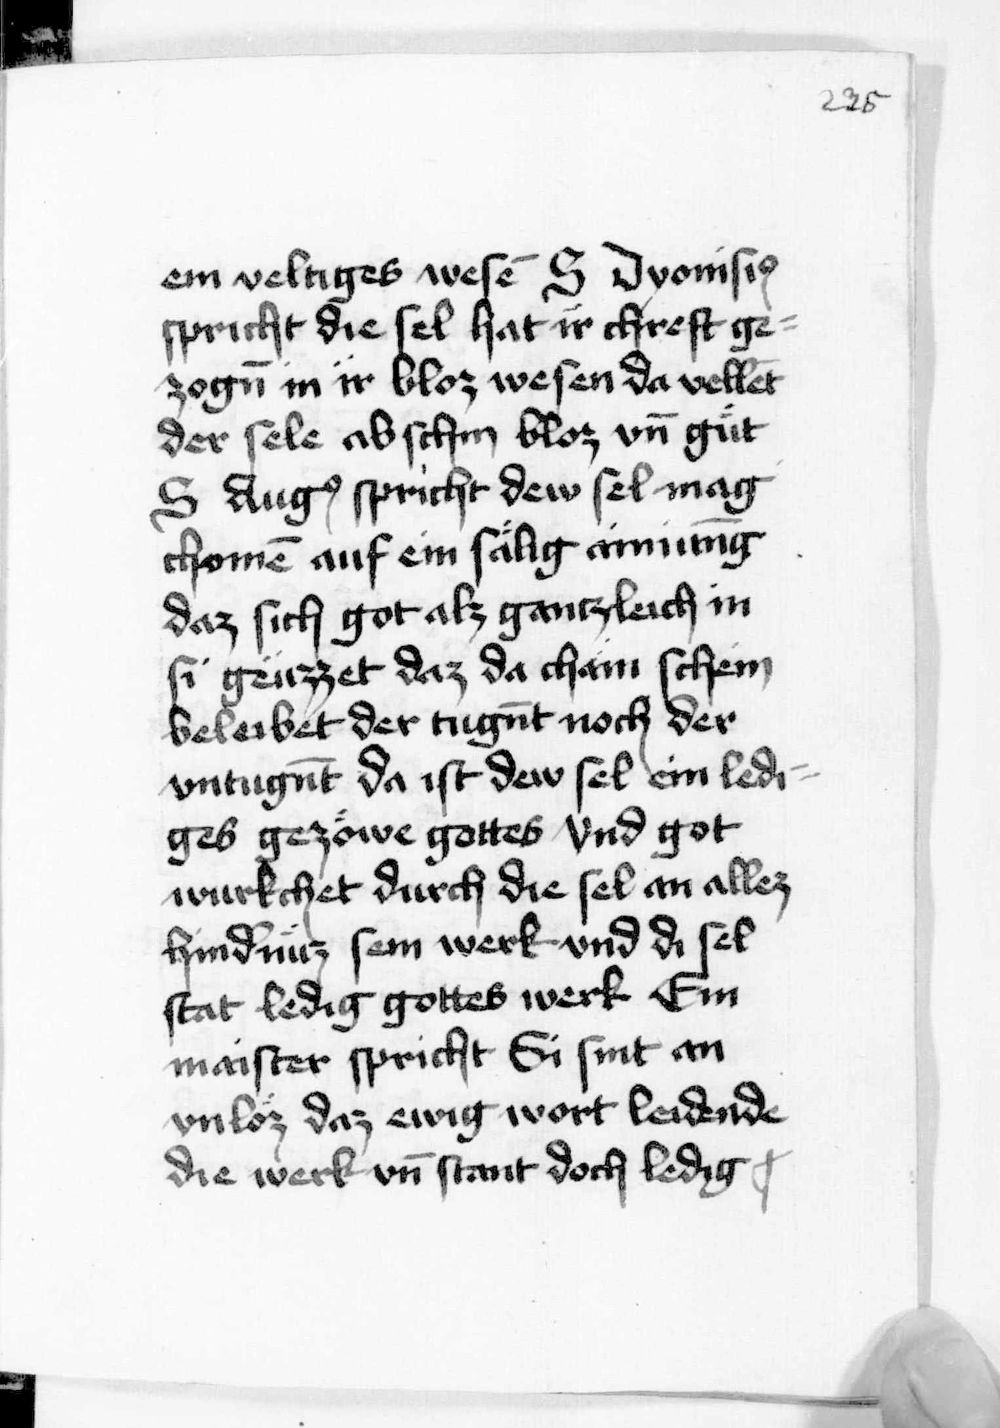 235
ein veltiges wesē S Dyonisiꝰ
spricht die sel hat ir chreft ge=
zogn̄ in ir bloz wesen da vellēt
der sele ab schin bloz vn̄ gu̇t
S Augꝰ spricht dew sel mag
chomē auf ein sälig ainiūng
daz sich got alz gantzleich in
si geuzzet daz da chain schein
beleibet der tugn̄t noch der
vntugn̄t da ist dew sel ein ledi=
ges gezöwe gottes Vnd got
wurkchet durch die sel an allez
hind'nüz sein werk vnd di sel
stat ledig gottes werk Ein
maister spricht Si sint an
vnlöz daz ewig wort leidende
die werk vn̄ stant doch ledig ¶